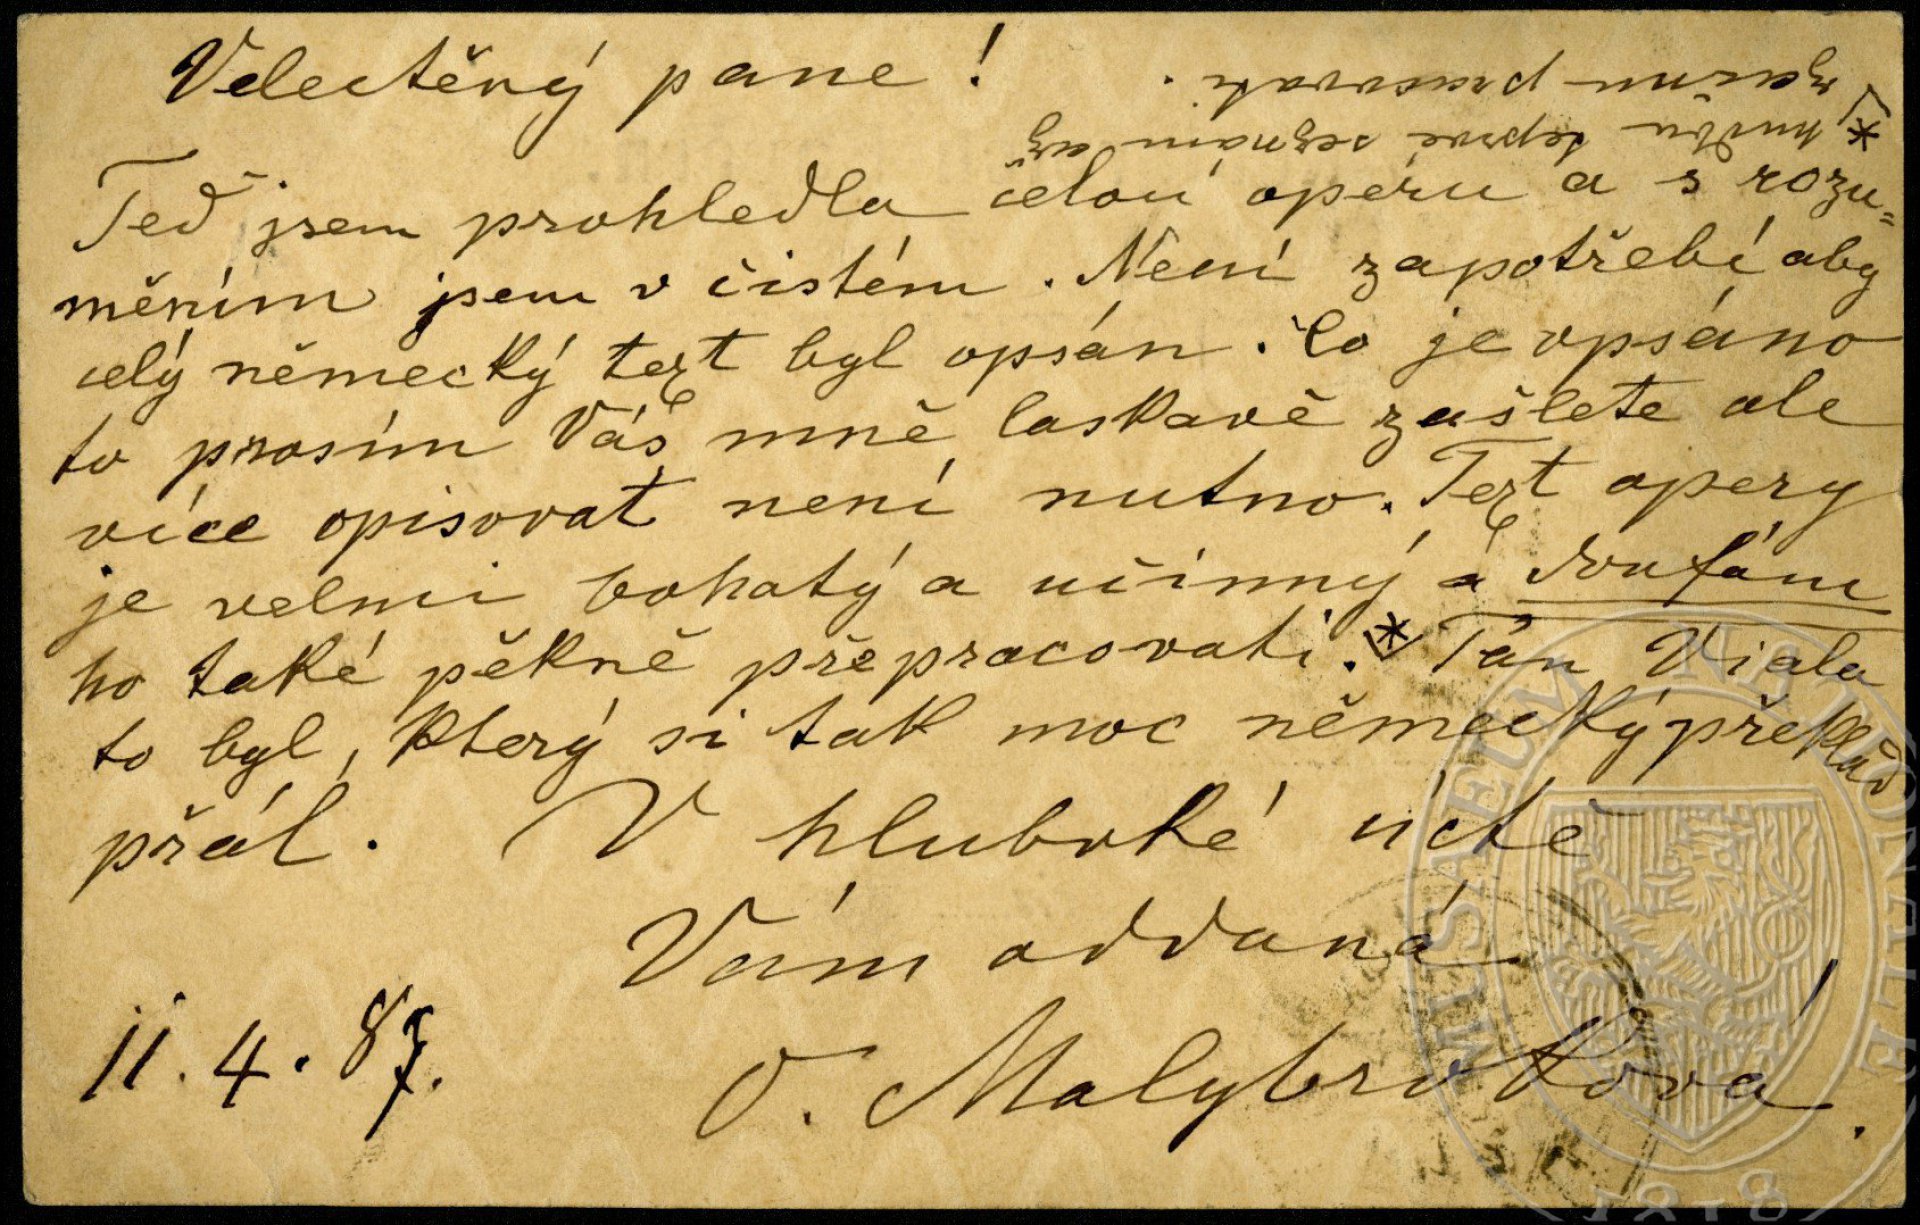 Velectěný pane!
Teď jsem prohledla celou operu a s rozu=
měním jsem v čistém. Není zapotřebí aby
celý německý text byl opsán. Co je opsáno
to prosím Vás mně laskavě zašlete ale
více opisovat není nutno. Text opery
je velmi bohatý a učinný a doufám
ho také pěkně přepracovati.* Pan Viala
to byl, který si tak moc německý překlad
přál. V hluboké úctě
Vám oddaná
O. Malybrokova.
11.4.87.
* hudbu teprvé seznám až
začnu pracovati.
MUSAEUM NATIONALE
1818